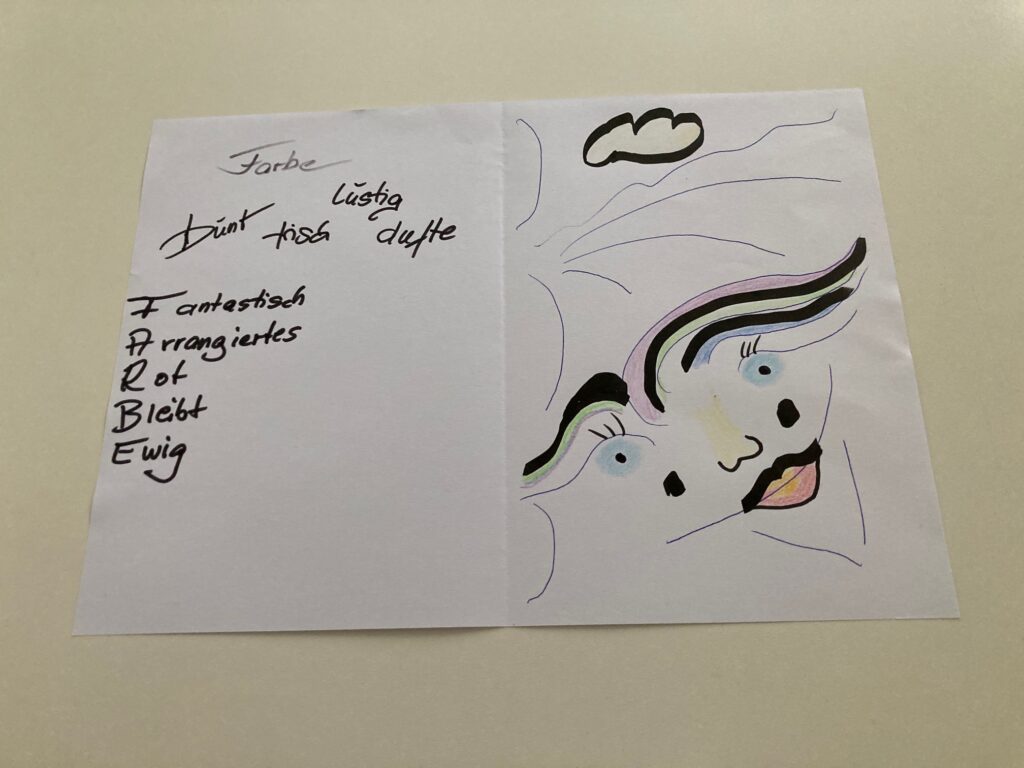 Farbe
lustig
bunt frisch dufte
Fantastisch
Arrangiertes
Rot
Bleibt
Ewig